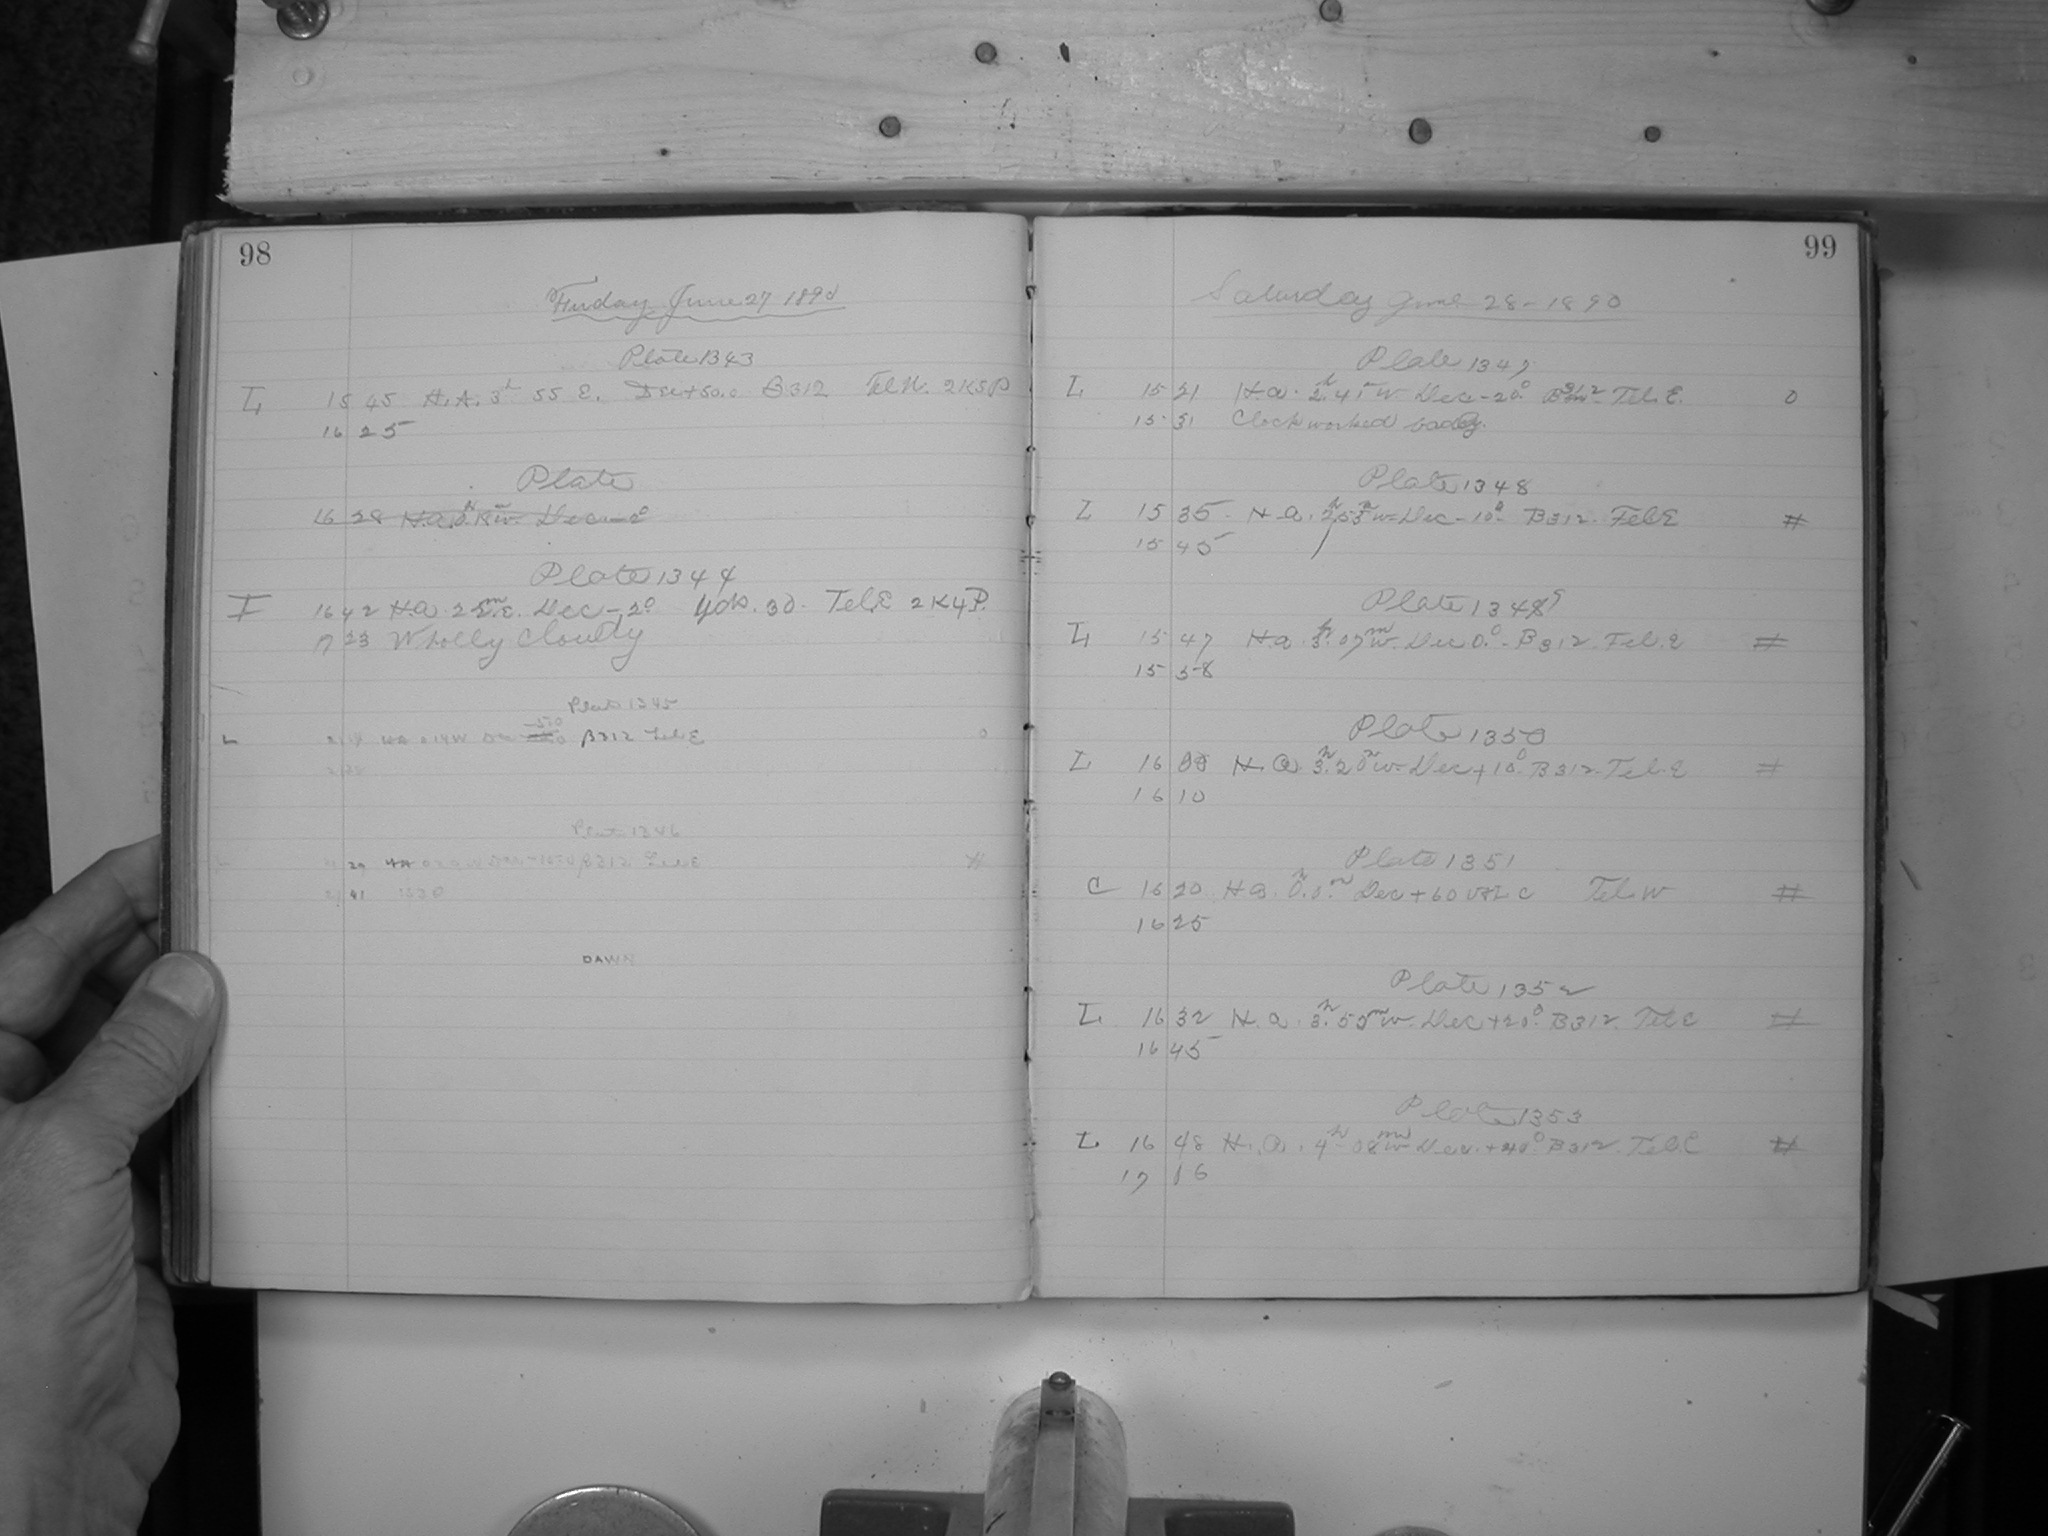 98
Friday June 27 1890
Plate 1343
L 15 45 H.A. 3h 55 E. Dec+50.0 B312 Tel W. 2K5P
16 25
Plate
16 28 H.a. 0h 18m w. Dec - 2°
Plate 1344
I 16 42 H.a. 2 E. Dec - 2° 30. Tel.E 2K4P.
17 23 Wholly Cloudy
Plate 1345
L HA 0 14 W Dec B312 Tel E 0
Plate 1346
29 HA B312 Tel E #
21 41
DAWN
99
Saturday June 28-1890
Plate 1347
L 15 21 H.a. 2h 41m W Dec - 20° B312 Tel. E. 0
15 31 Clock worked badly.
Plate 1348
L 15 35 H.a. 2h 53m w. Dec - 10° B312. Tel.E #
15 45
Plate 1349
L 15 47 H.a. 3h 07m w. Dec 0.° - B312. Tel. E #
15 58
Plate 1350
L 16 00 H.a. 3h 20m w. Dec + 10° B312. Tel. E #
16 10
Plate 1351
C 16 20 H.a. 0h 0m Dec + 60 C Tel. W #
16 25
Plate 1352
L 16 32 H.a. 3h 50m w. Dec + 20° B312. Tel E #
16 45
Plate 1353
L 16 48 H.a. 4h 08m w Dec. + 40° B312. Tel. E #
17 16